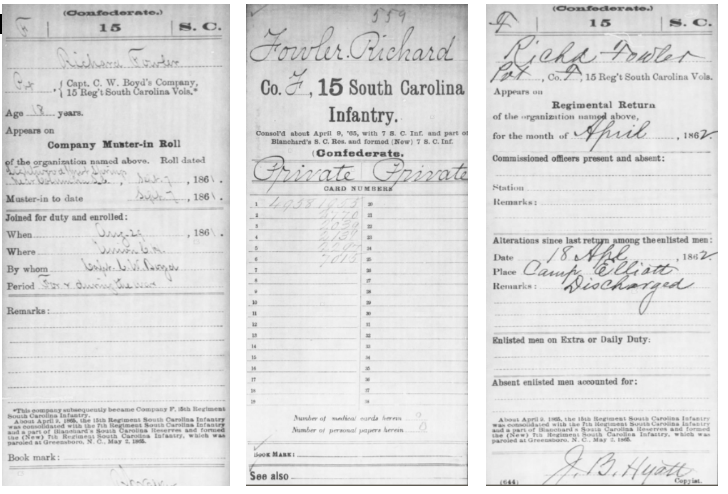 (Confederate.)
F 15 S. C.
Richard Fowler
Pvt, { Capt. C. W. Boyd's Company,
{ 15 Reg't South Carolina Vols.*
Age 18 years.
Appears on
Company Muster-in Roll
of the organization named above. Roll dated
Sept. 7, 1861.
Muster-in to date Sept. 7, 1861.
Joined for duty and enrolled:
When Aug. 29, 1861.
Where Union C.H.
By whom Capt. C. W. Boyd
Period For & during the war
Remarks:
*This company subsequently became Company F, 15th Regiment
South Carolina Infantry.
About April 9, 1865, the 15th Regiment South Carolina Infantry
was consolidated with the 7th Regiment South Carolina Infantry
and a part of Blanchard's South Carolina Reserves and formed
the (New) 7th Regiment South Carolina Infantry, which was
paroled at Greensboro, N. C., May 2, 1865.
Book mark:
559
Fowler, Richard
Co. F, 15 South Carolina
Infantry.
Consol'd about April 9, '65, with 7 S. C. Inf. and part of
Blanchard's S. C. Res. and formed (New) 7 S. C. Inf.
(Confederate.)
Private Private
CARD NUMBERS
1 20
2 21
3 22
4 23
5 24
6 25
7 26
8 27
9 28
10 29
11 30
12 31
13 32
14 33
15 34
16 35
17 36
18 37
19 38
Number of medical cards herein 0
Number of personal papers herein 0
BOOK MARK:
See also
(Confederate.)
F 15 S. C.
Richd Fowler
Pvt, Co. F, 15 Reg't South Carolina Vols.
Appears on
Regimental Return
of the organization named above,
for the month of April, 1862.
Commissioned officers present and absent:
Station
Remarks:
Alterations since last return among the enlisted men:
Date 18 Apl, 1862.
Place Camp Elliott
Remarks: Discharged
Enlisted men on Extra or Daily Duty:
Absent enlisted men accounted for:
About April 9, 1865, the 15th Regiment South Carolina Infantry
was consolidated with the 7th Regiment South Carolina Infantry
and a part of Blanchard's South Carolina Reserves and formed
the (New) 7th Regiment South Carolina Infantry, which was
paroled at Greensboro, N. C., May 2, 1865.
J. B. Hyatt
(644) Copyist.